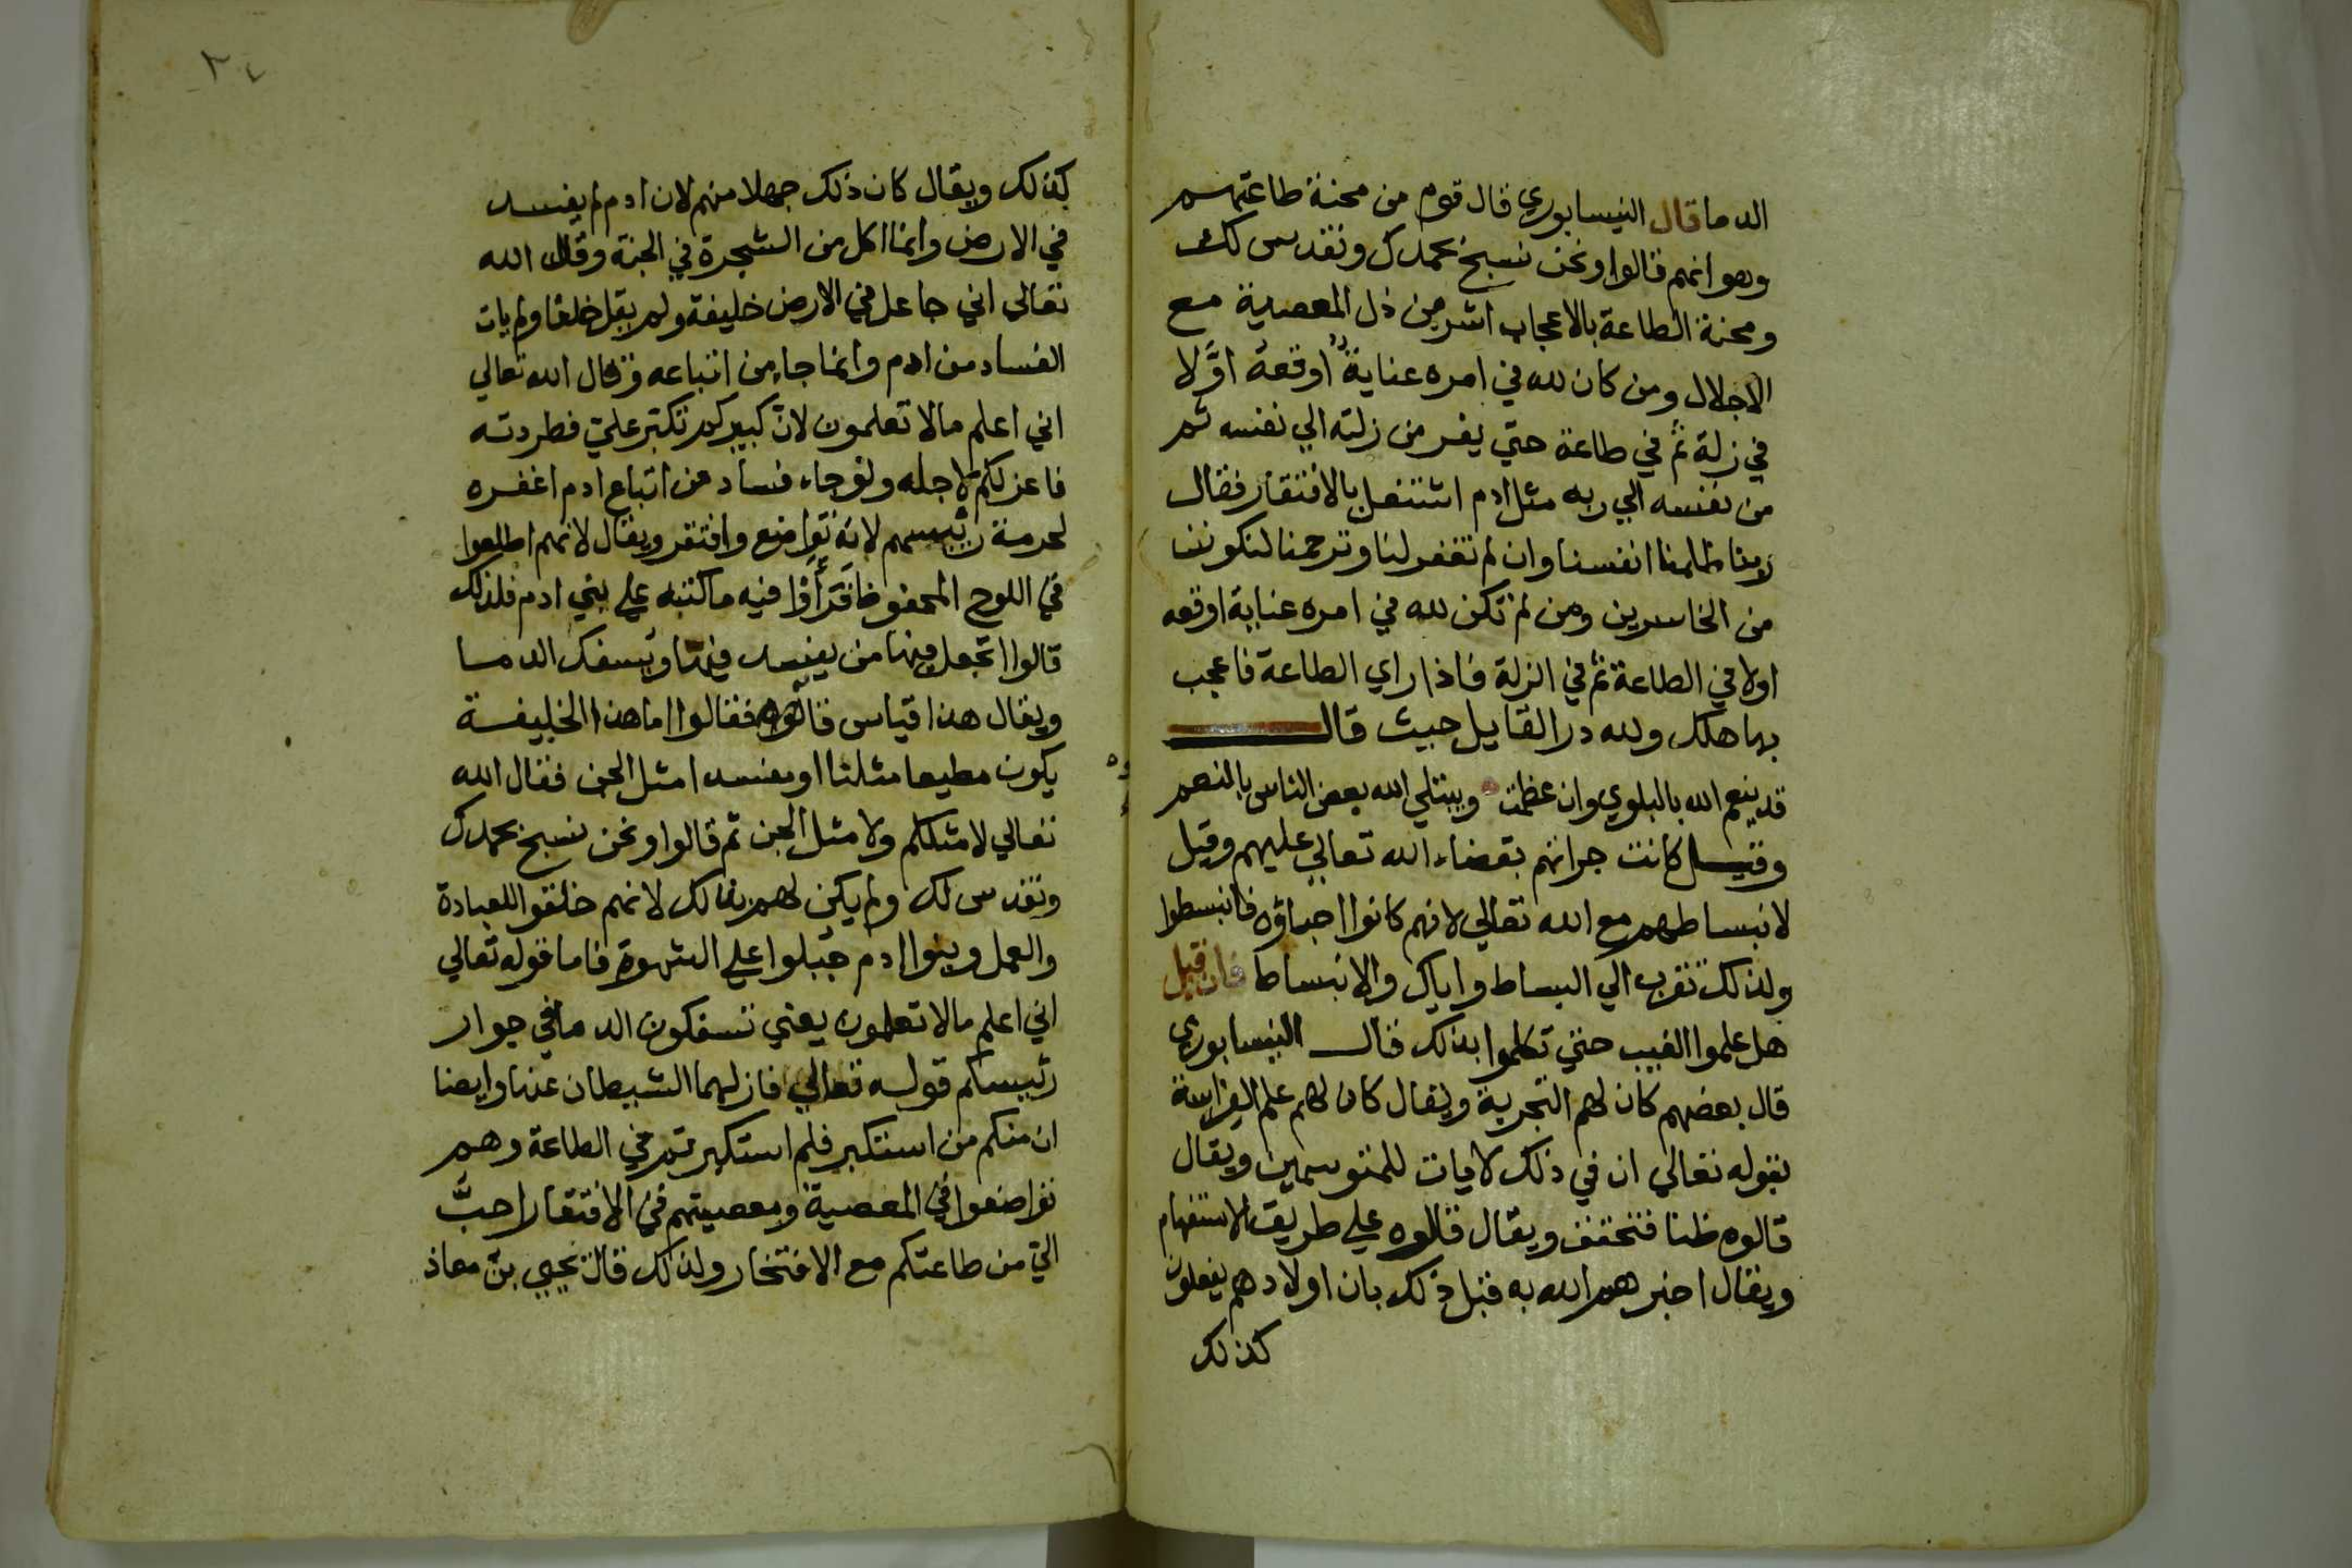 الدما قال النيسابوري قال قوم من محنة طاعتهم
وهو انهم قالوا ونحن نسبح بحمدك ونقدس لك
ومحنة الطاعة بالاعجاب اشر من ذل المعصية مع
الاجلال ومن كان لله في امره عناية اوقعه اوَّلا
في زلة ثم في طاعة حتي يفر من زلته الي نفسه ثم
من نفسه الي ربه مثل ادم اشتغل بالافتقار فقال
ربنا ظلمنا انفسنا وان لم تغفر لنا وترحمنا لنكونن
من الخاسرين ومن لم تكن لله في امره عناية اوقعه
اولا في الطاعة ثم في الزلة فاذا راي الطاعة فاعجب
بها هلك ولله در القايل حيث قال
قد ينعم الله بالبلوي وان عظمت ويبتلي الله بعض الناس بالنعم
وقيل كانت جراتهم بقضاء الله تعالي عليهم وقيل
لانبساطهم مع الله تعالي لانهم كانوا احباؤه فانبسطوا
ولذلك تقرب الي البساط واياك والانبساط فان قيل
هل علموا الغيب حتي تكلموا بذلك قال النيسابوري
قال بعضهم كان لهم التجربة ويقال كان لهم علم الفراسة
بقوله تعالي ان في ذلك لايات للمتوسمين ويقال
قالوه ظنا فتحقق ويقال قالوه علي طريق الاستفهام
ويقال اخبرهم الله به قبل ذلك بان اولادهم يفعلون
كذلك
٢٤
كذلك ويقال كان ذلك جهلا منهم لان ادم لم يفسد
في الارض وانما اكل من الشجرة في الجنة وقال الله
تعالي اني جاعل في الارض خليفة ولم يقل خلفا ولم يات
الفساد من ادم وانما جاء من اتباعه وقال الله تعالي
اني اعلم مالا تعلمون لانّ كبيركم تكبّر عليّ فطردته
فاعزلكم لاجله ولو جاء فساد من اتباع ادم اغفره
لحرمة رئيسهم لانه تواضع وافتقر ويقال لانهم اطلعوا
في اللوح المحفوظ فقرأوا فيه ما كتبه علي بني ادم فلذلك
قالوا اتجعل فيها من يفسد فيها ويسفك الدما
ويقال هذا قياس قالوه فقالوا اما هذا الخليفة
يكون مطيعا مثلنا او مفسدا مثل الجن فقال الله
تعالي لا مثلكم ولا مثل الجن ثم قالوا ونحن نسبح بحمدك
ونقدس لك ولم يكن لهم ذلك لانهم خلقوا للعبادة
والعمل وبنوا ادم جُبلوا علي الشهوة فاما قوله تعالي
اني اعلم مالا تعلمون يعني تسفكون الدما في جوار
رئيسكم قوله تعالي فازلهما الشيطان عنها وايضا
ان منكم من استكبر فلم استكبرتم في الطاعة وهم
تواضعوا في المعصية ومعصيتهم في الافتقار احبُّ
اليّ من طاعتكم مع الافتخار ولذلك قال يحيي بن معاذ